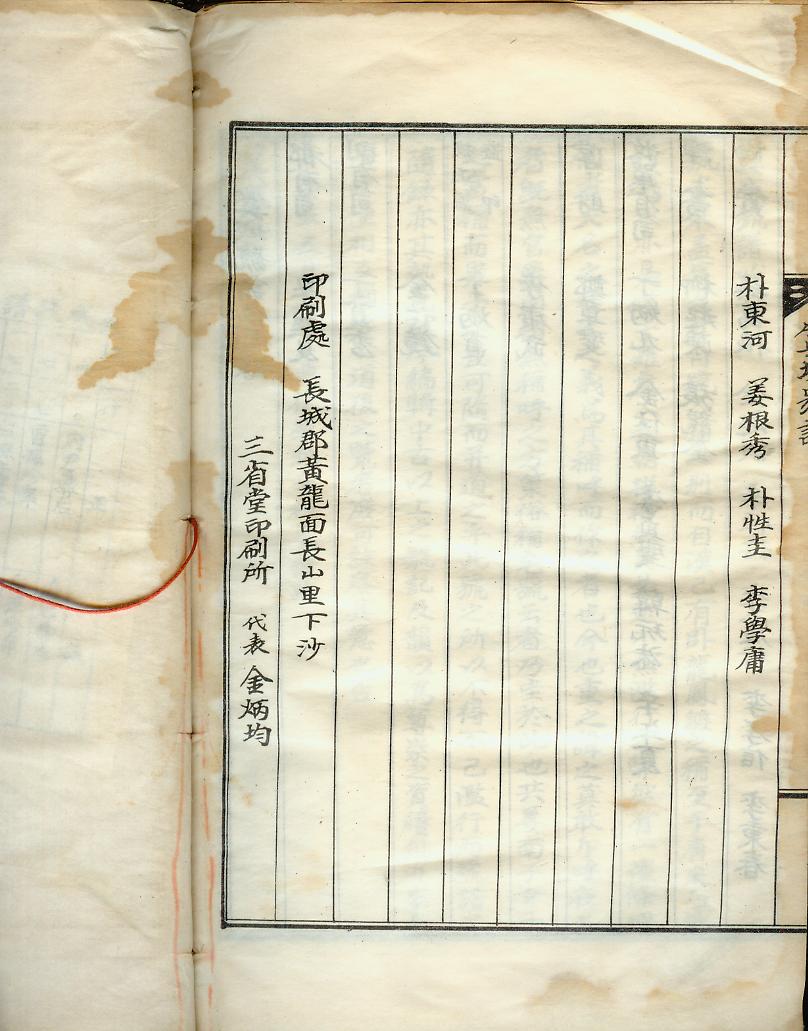 朴東河 姜根秀 朴性圭 李學庸
印刷處 長城郡黃龍面長山里下沙
三省堂印刷所 代表 金炳均